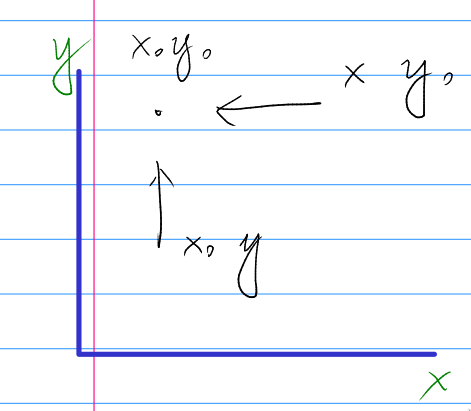 y
x₀ y₀
x y₀
x₀ y
x